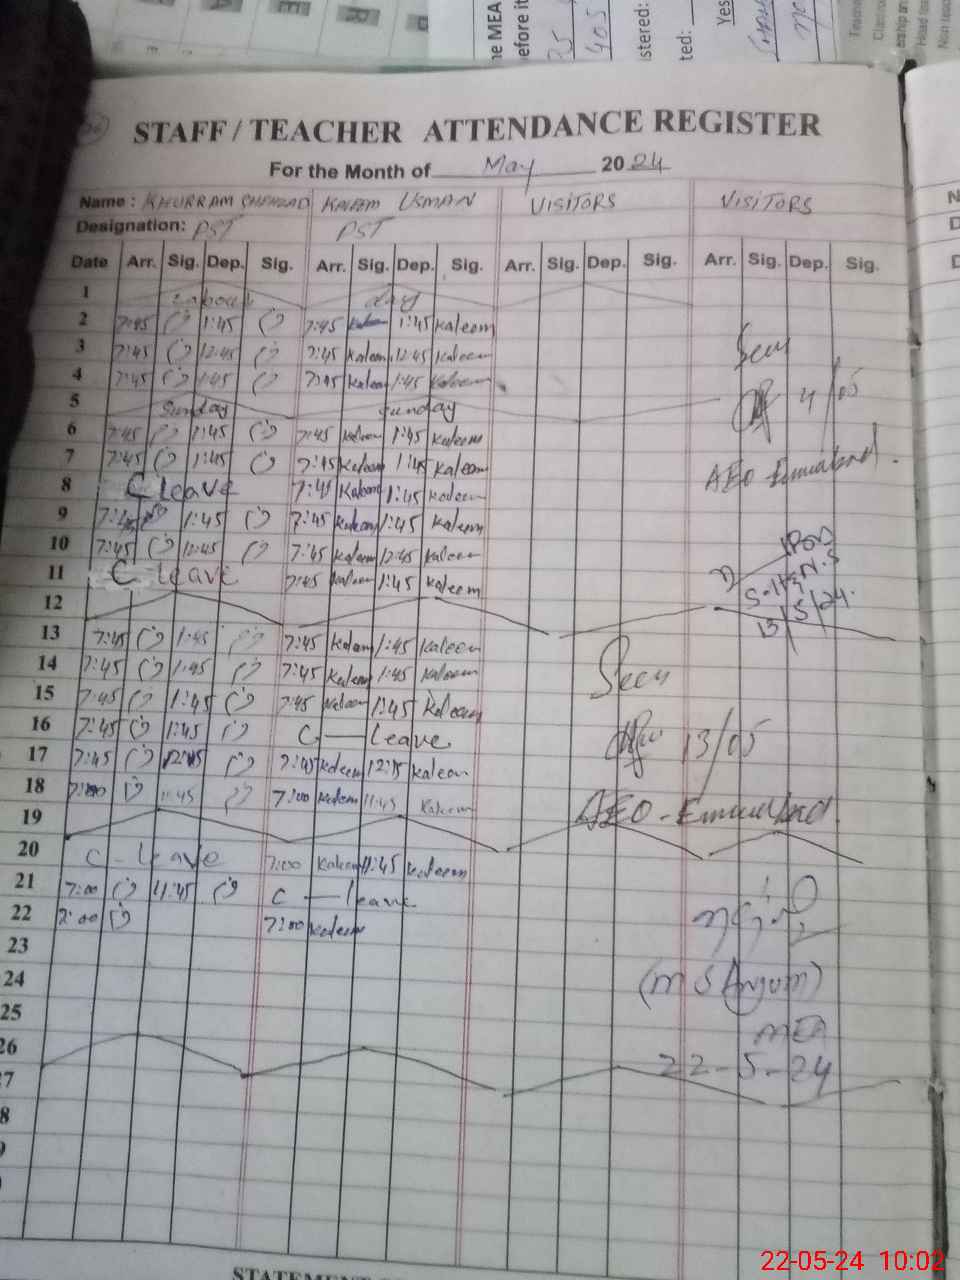 STAFF / TEACHER ATTENDANCE REGISTER
For the Month of May 2024
Name : KHURRAM SHEHZAD KALEEM USMAN VISITORS VISITORS
Designation: PST PST
Date Arr. Sig. Dep. Sig. Arr. Sig. Dep. Sig. Arr. Sig. Dep. Sig. Arr. Sig. Dep. Sig.
1 Labour day
2 7:45 1:45 7:45 Kaleem 1:45 Kaleem
3 7:45 12:45 7:45 Kaleem 12:45 Kaleem
4 7:45 1:45 7:45 Kaleem 1:45 Kaleem
5 Sunday Sunday
6 7:45 1:45 7:45 Kaleem 1:45 Kaleem
7 7:45 1:45 7:45 Kaleem 1:45 Kaleem
8 C leave 7:45 Kaleem 1:45 Kaleem
9 7:45 1:45 7:45 Kaleem 1:45 Kaleem
10 7:45 12:45 7:45 Kaleem 12:45 Kaleem
11 C leave 7:45 Kaleem 1:45 Kaleem
12
13 7:45 1:45 7:45 Kaleem 1:45 Kaleem
14 7:45 1:45 7:45 Kaleem 1:45 Kaleem
15 7:45 1:45 7:45 Kaleem 1:45 Kaleem
16 7:45 1:45 C — Leave
17 7:45 12:45 7:45 Kaleem 12:15 Kaleem
18 7:00 11:45 7:00 Kaleem 11:45 Kaleem
19
20 C - Leave 7:00 Kaleem 11:45 Kaleem
21 7:00 11:45 C — leave
22 7:00 7:00 Kaleem
23
24
25
26
27
8
9
Seen
4/05
AEO
13/5/24
Seen
13/05
AEO -
(M S Anjum)
MEA
22-5-24
22-05-24 10:02